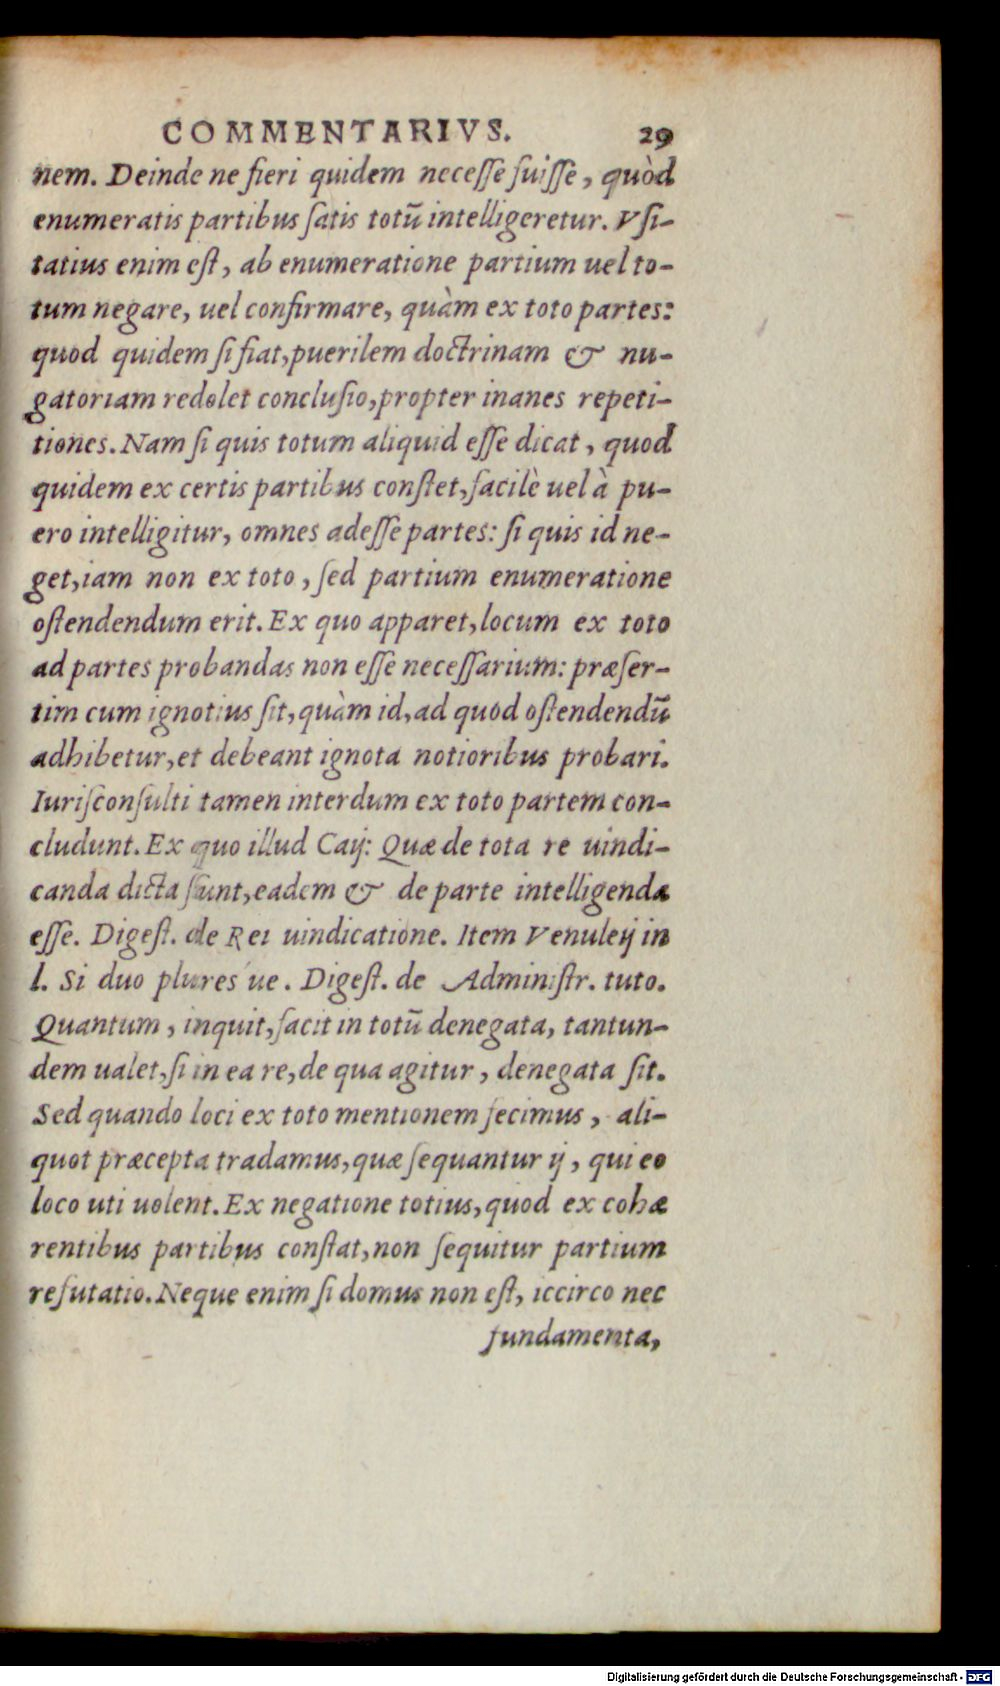 COMMENTARIVS. 29
nem. Deinde ne fieri quidem necesse fuisse, quòd
enumeratis partibus satis totū intelligeretur. Vsi-
tatius enim est, ab enumeratione partium uel to-
tum negare, uel confirmare, quàm ex toto partes:
quod quidem si fiat, puerilem doctrinam & nu-
gatoriam redolet conclusio, propter inanes repeti-
tiones. Nam si quis totum aliquid esse dicat, quod
quidem ex certis partibus constet, facilè uel à pu-
ero intelligitur, omnes adesse partes: si quis id ne-
get, iam non ex toto, sed partium enumeratione
ostendendum erit. Ex quo apparet, locum ex toto
ad partes probandas non esse necessarium: præser-
tim cum ignotius sit, quàm id, ad quod ostendendū
adhibetur, et debeant ignota notioribus probari.
Iurisconsulti tamen interdum ex toto partem con-
cludunt. Ex quo illud Caij: Quæ de tota re uindi-
canda dicta sunt, eadem & de parte intelligenda
esse. Digest. de Rei uindicatione. Item Venuleij in
l. Si duo plures'ue. Digest. de Administr. tuto.
Quantum, inquit, facit in totū denegata, tantun-
dem ualet, si in ea re, de qua agitur, denegata sit.
Sed quando loci ex toto mentionem fecimus, ali-
quot præcepta tradamus, quæ sequantur ij, qui eo
loco uti uolent. Ex negatione totius, quod ex cohæ
rentibus partibus constat, non sequitur partium
refutatio. Neque enim si domus non est, iccirco nec
fundamenta,
Digitalisierung gefördert durch die Deutsche Forschungsgemeinschaft - DFG